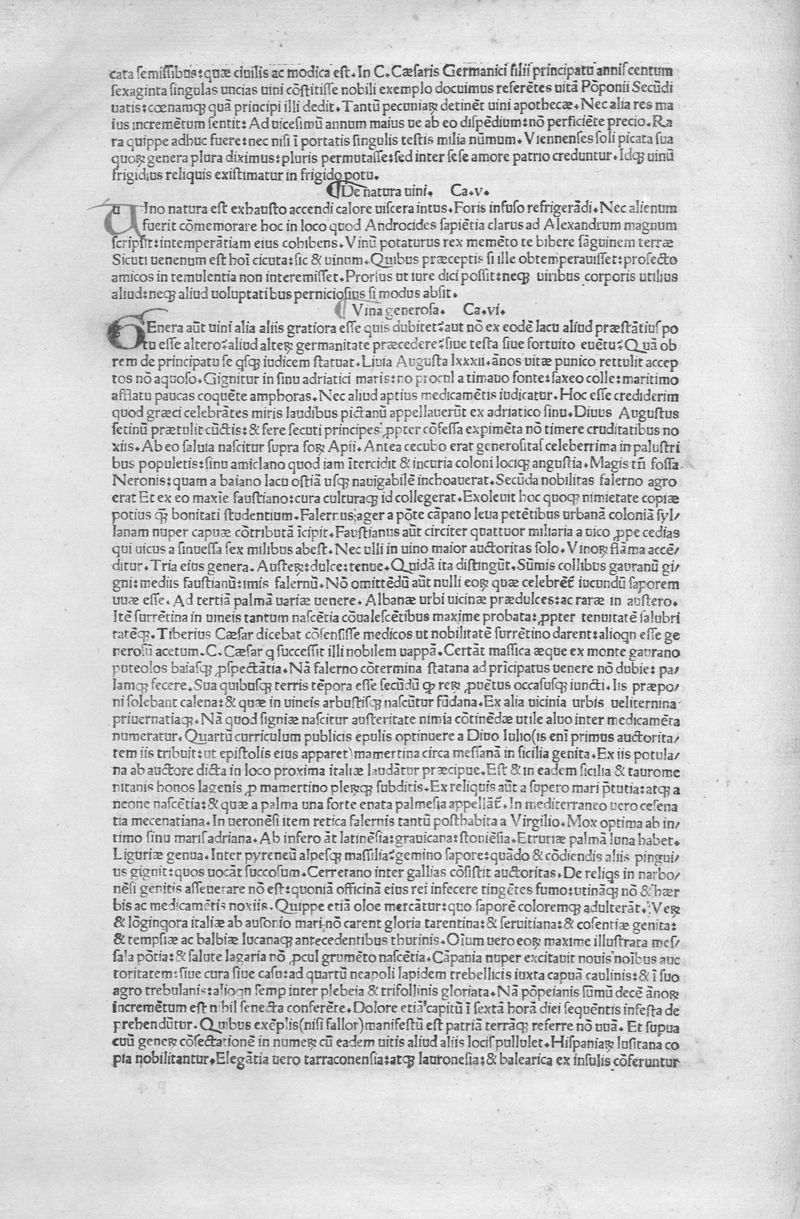 cata semissibus:quæ ciuilis ac modica est. In C. Cæsaris Germanici filii principatu annis centum
sexaginta singulas uncias uini cōstitisse nobili exemplo docuimus referētes uitā Pōponii Secūdi
uatis:cœnamꝗ quā principi illi dedit. Tantū pecuniaꝝ detinēt uini apothecæ. Nec alia res ma
ius incremētum sentit:Ad uicesimū annum maius ue ab eo dispēdium:nō perficiēte precio. Ra
ra quippe adhuc fuere:nec nisi ī portatis singulis testis milia nūmum. Viennenses soli picata sua
quoꝝ genera plura diximus:pluris permutasse:sed inter sese amore patrio creduntur. Idꝗ uinū
frigidius reliquis existimatur in frigido potu.
De natura uini. Ca.v.
UIno natura est exhausto accendi calore uiscera intus. Foris infuso refrigerādi. Nec alienum
fuerit cōmemorare hoc in loco quod Androcides sapiētia clarus ad Alexandrum magnum
scripsit:intemperātiam eius cohibens. Vinū potaturus rex memēto te bibere sāguinem terræ
Sicuti uenenum est hoī cicuta:sic & uinum. Quibus præceptis si ille obtemperauisset:profecto
amicos in temulentia non interemisset. Prorsus ut iure dici possit:neꝗ uiribus corporis utilius
aliud:neꝗ aliud uoluptatibus perniciosius si modus absit.
Vina generosa. Ca.vi.
GEnera aūt uini alia aliis gratiora esse quis dubitet:aut nō ex eodē lacu aliud præstātius po
tu esse altero:aliud alteꝝ germanitate præcedere:siue testa siue fortuito euētu:Quā ob
rem de principatu se qsꝗ iudicem statuat. Liuia Augusta lxxxii. ānos uitæ pucino rettulit accep
tos nō aquoso. Gignitur in sinu adriatici maris:no procul a timauo fonte:saxeo colle:maritimo
afflatu paucas coquēte amphoras. Nec aliud aptius medicamētis iudicatur. Hoc esse crediderim
quod græci celebrātes miris laudibus pictanū appellauerūt ex adriatico sinu. Diuus Augustus
setinū prætulit cūctis:& fere secuti principes ꝓpter cōfessa expimēta nō timere cruditatibus no
xiis. Ab eo saluia nascitur supra foꝝ Apii. Antea cecubo erat generositas celeberrima in palustri
bus populetis:sinu amiclano quod iam ītercidit & incuria coloni lociꝗ angustia. Magis tn̄ fossa
Neronis:quam a baiano lacu ostiā usꝗ nauigabilē inchoauerat. Secūda nobilitas falerno agro
erat Et ex eo maxīe faustiano:cura culturaꝗ id collegerat. Exoleuit hoc quoꝗ nimietate copiæ
potius ꝗ̄ bonitati studentium. Falernus ager a pōte cāpano leua petētibus urbanā coloniā syl/
lanam nuper capuæ cōtributā īcipit. Faustianus aūt circiter quattuor miliaria a uico ꝓpe cedias
qui uicus a sinuessa sex milibus abest. Nec ulli in uino maior auctoritas solo. Vinoꝝ flāma accē/
ditur. Tria eius genera. Austeꝝ:dulce:tenue. Quidā ita distingūt. Sūmis collibus gauranū gi/
gni:mediis faustianū:imis falernū. Nō omittēdū aūt nulli eoꝝ quæ celebrēt̄ iucundū saporem
uuæ esse. Ad tertiā palmā uariæ uenere. Albanæ urbi uicinæ prædulces:ac raræ in austero.
Itē surrētina in uineis tantum nascētia cōualescētibus maxime probata:ꝓpter tenuitatē salubri
tatēꝗ. Tiberius Cæsar dicebat cōsensisse medicos ut nobilitatē surrētino darent:alioqn esse ge
nerosū acetum. C. Cæsar q successit illi nobilem uappā. Certāt massica æque ex monte gaurano
puteolos baiasꝗ ꝓspectātia. Nā falerno cōtermina statana ad prīcipatus uenere nō dubie: pa/
lamꝗ fecere. Sua quibusꝗ terris tēpora esse secūdū ꝗ reꝝ ꝓuētus occasusꝗ iuncti. Iis præpo/
ni solebant calena:& quæ in uineis arbustisꝗ nascūtur fūdana. Ex alia uicinia urbis ueliternina
priuernatiaꝗ. Nā quod signiæ nascitur austeritate nimia cōtinēdæ utile aluo inter medicamēta
numeratur. Quartū curriculum publicis epulis optinuere a Diuo Iulio(is enī primus auctorita/
tem iis tribuit:ut epistolis eius apparet)mamertina circa messanā in sicilia genita. Ex iis potula/
na ab auctore dicta in loco proxima italiæ laudātur præcipue. Est & in eadem sicilia & taurome
nitanis honos lagenis ꝓ mamertino pleꝝꝗ subditis. Ex reliquis aūt a supero mari p̄tutia:atꝗ a
ncone nascētia:& quæ a palma una forte enata palmesia appellāt̄. In mediterraneo uero cesena
tia mecenatiana. In ueronēsi item retica falernis tantū posthabita a Virgilio. Mox optima ab in/
timo sinu maris adriana. Ab infero āt latinēsia:grauicana:stoniēsia. Etruriæ palmā luna habet.
Liguriæ genua. Inter pyreneū alpesꝗ massilia:gemino sapore:quādo & cōdiendis aliis pingui/
us gignit:quos uocāt succosum. Cerretano inter gallias cōsistit auctoritas. De reliqs in narbo/
nēsi genitis asseuerare nō est:quoniā officinā eius rei infecere tingētes fumo:utināꝗ nō & hær
bis ac medicamētis noxiis. Quippe etiā oloe mercātur:quo saporē coloremꝗ adulterāt. Veꝝ
& lōgingora italiæ ab ausonio mari nō carent gloria tarentina:& seruitiana:& cosentiæ genita:
& tempsiæ ac balbiæ lucanaꝗ antecedentibus thurinis. Oīum uero eoꝝ maxime illustrata mes/
sala pōtia:& salute lagaria nō ꝓcul grumēto nascētia. Cāpania nuper excitauit nouis noībus auc
toritatem:siue cura siue casu:ad quartū neapoli lapidem trebellicis iuxta capuā caulinis:& ī suo
agro trebulanis:alioqn semp inter plebeia & trifollinis gloriata. Nā pōpeianis sūmū decē ānoꝝ
incremētum est nihil senecta conferēte. Dolore etiā capitū ī sextā horā diei sequētis infesta de
prehendūtur. Quibus exēplis(nisi fallor)manifestū est patriā terrāꝗ referre nō uuā. Et supua
cuū geneꝝ cōsectationē in numeꝝ cū eadem uitis aliud aliis locis pullulet. Hispaniaꝝ lusitana co
pia nobilitantur. Elegātia uero tarraconensia:atꝗ lauronesia:& balearica ex insulis cōferuntur